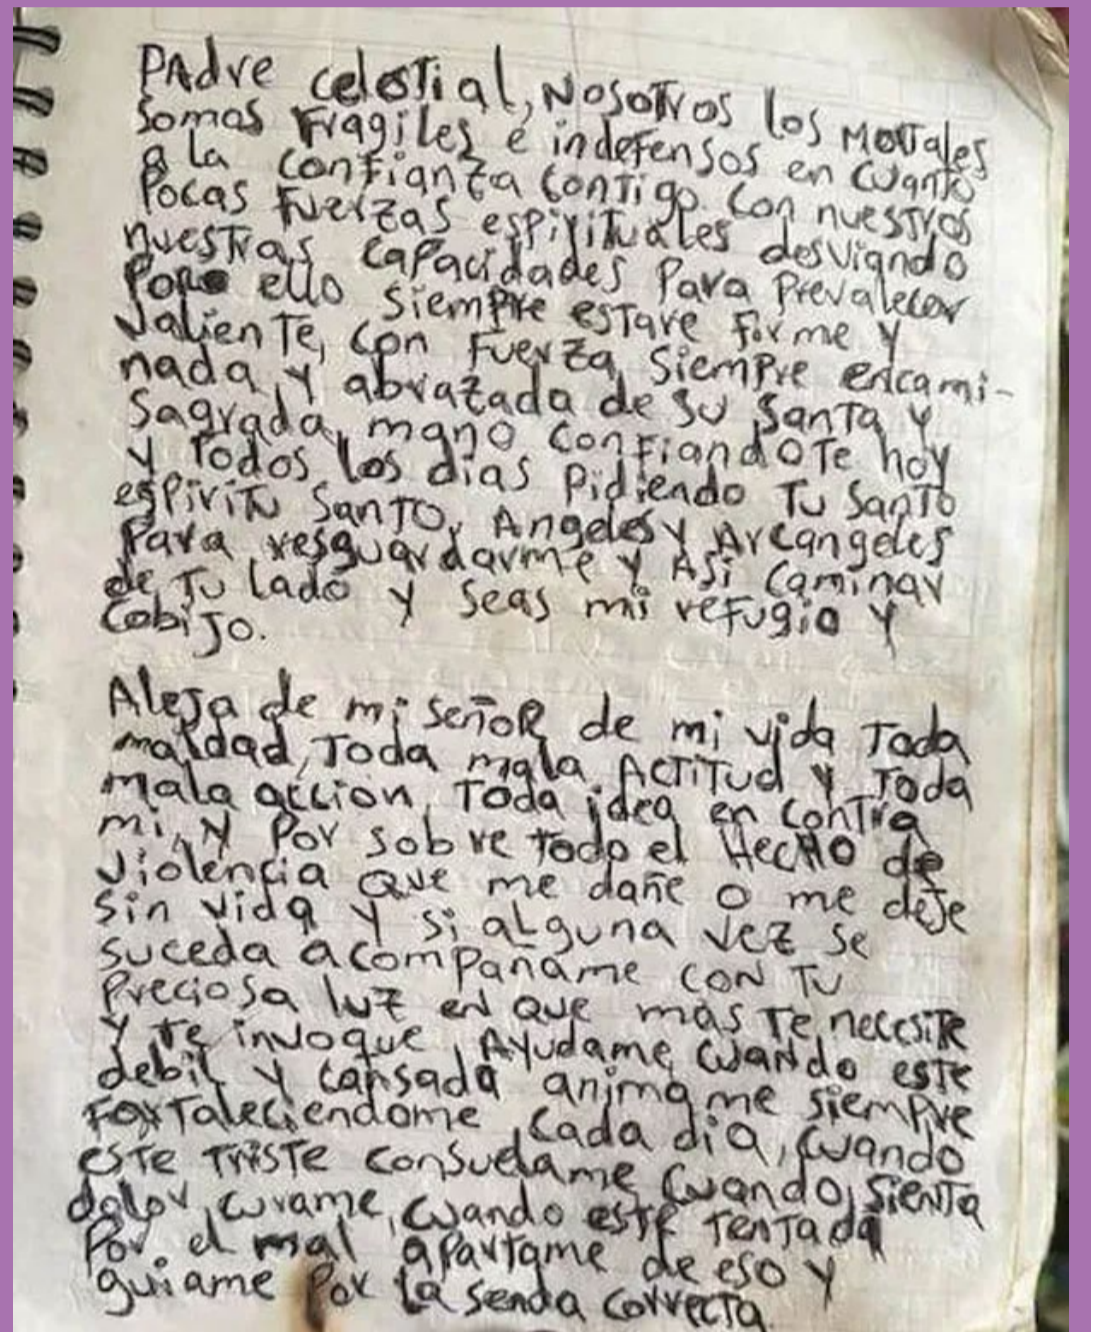 PAdre celestial, Nosotros los Mortales
somos Fragiles e indefensos en cuanto
a la confianza contigo. Con nuestros
Pocas Fuerzas espirituales desviando
nuestras capacidades Para Prevalecer
Por ello siempre estare firme y
valiente, con Fuerza, siempre encami-
nada, y abrazada de su Santa y
Sagrada mano confiandote hoy
y Todos los dias Pidiendo Tu Santo
espiritu Santo, Angeles y Arcangeles
Para resguardarme y Asi caminar
de Tu lado y seas mi refugio y
Cobijo.
Aleja de mi señoR de mi vida Toda
maldad, Toda mala Actitud y Toda
mala accion, Toda idea en contra
mi, y Por sobre todo el HecHo de
violencia que me dañe o me deje
sin vida y si alguna vez se
suceda acompañame con Tu
Preciosa luz en que mas Te necesite
y te invoque, Ayudame, cuando este
debil y cansada animame siempre
Fortaleciendome, cada dia, cuando
este triste consuelame cuando, sienta
dolor, curame, cuando este Tentada
Por el mal apartame de eso y
guiame Por la senda correcta.